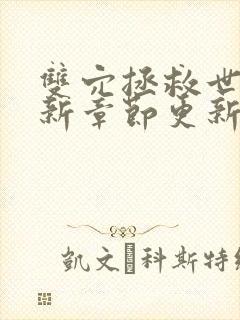 雙穴拯救世
新章節更新
凱文�科斯特納